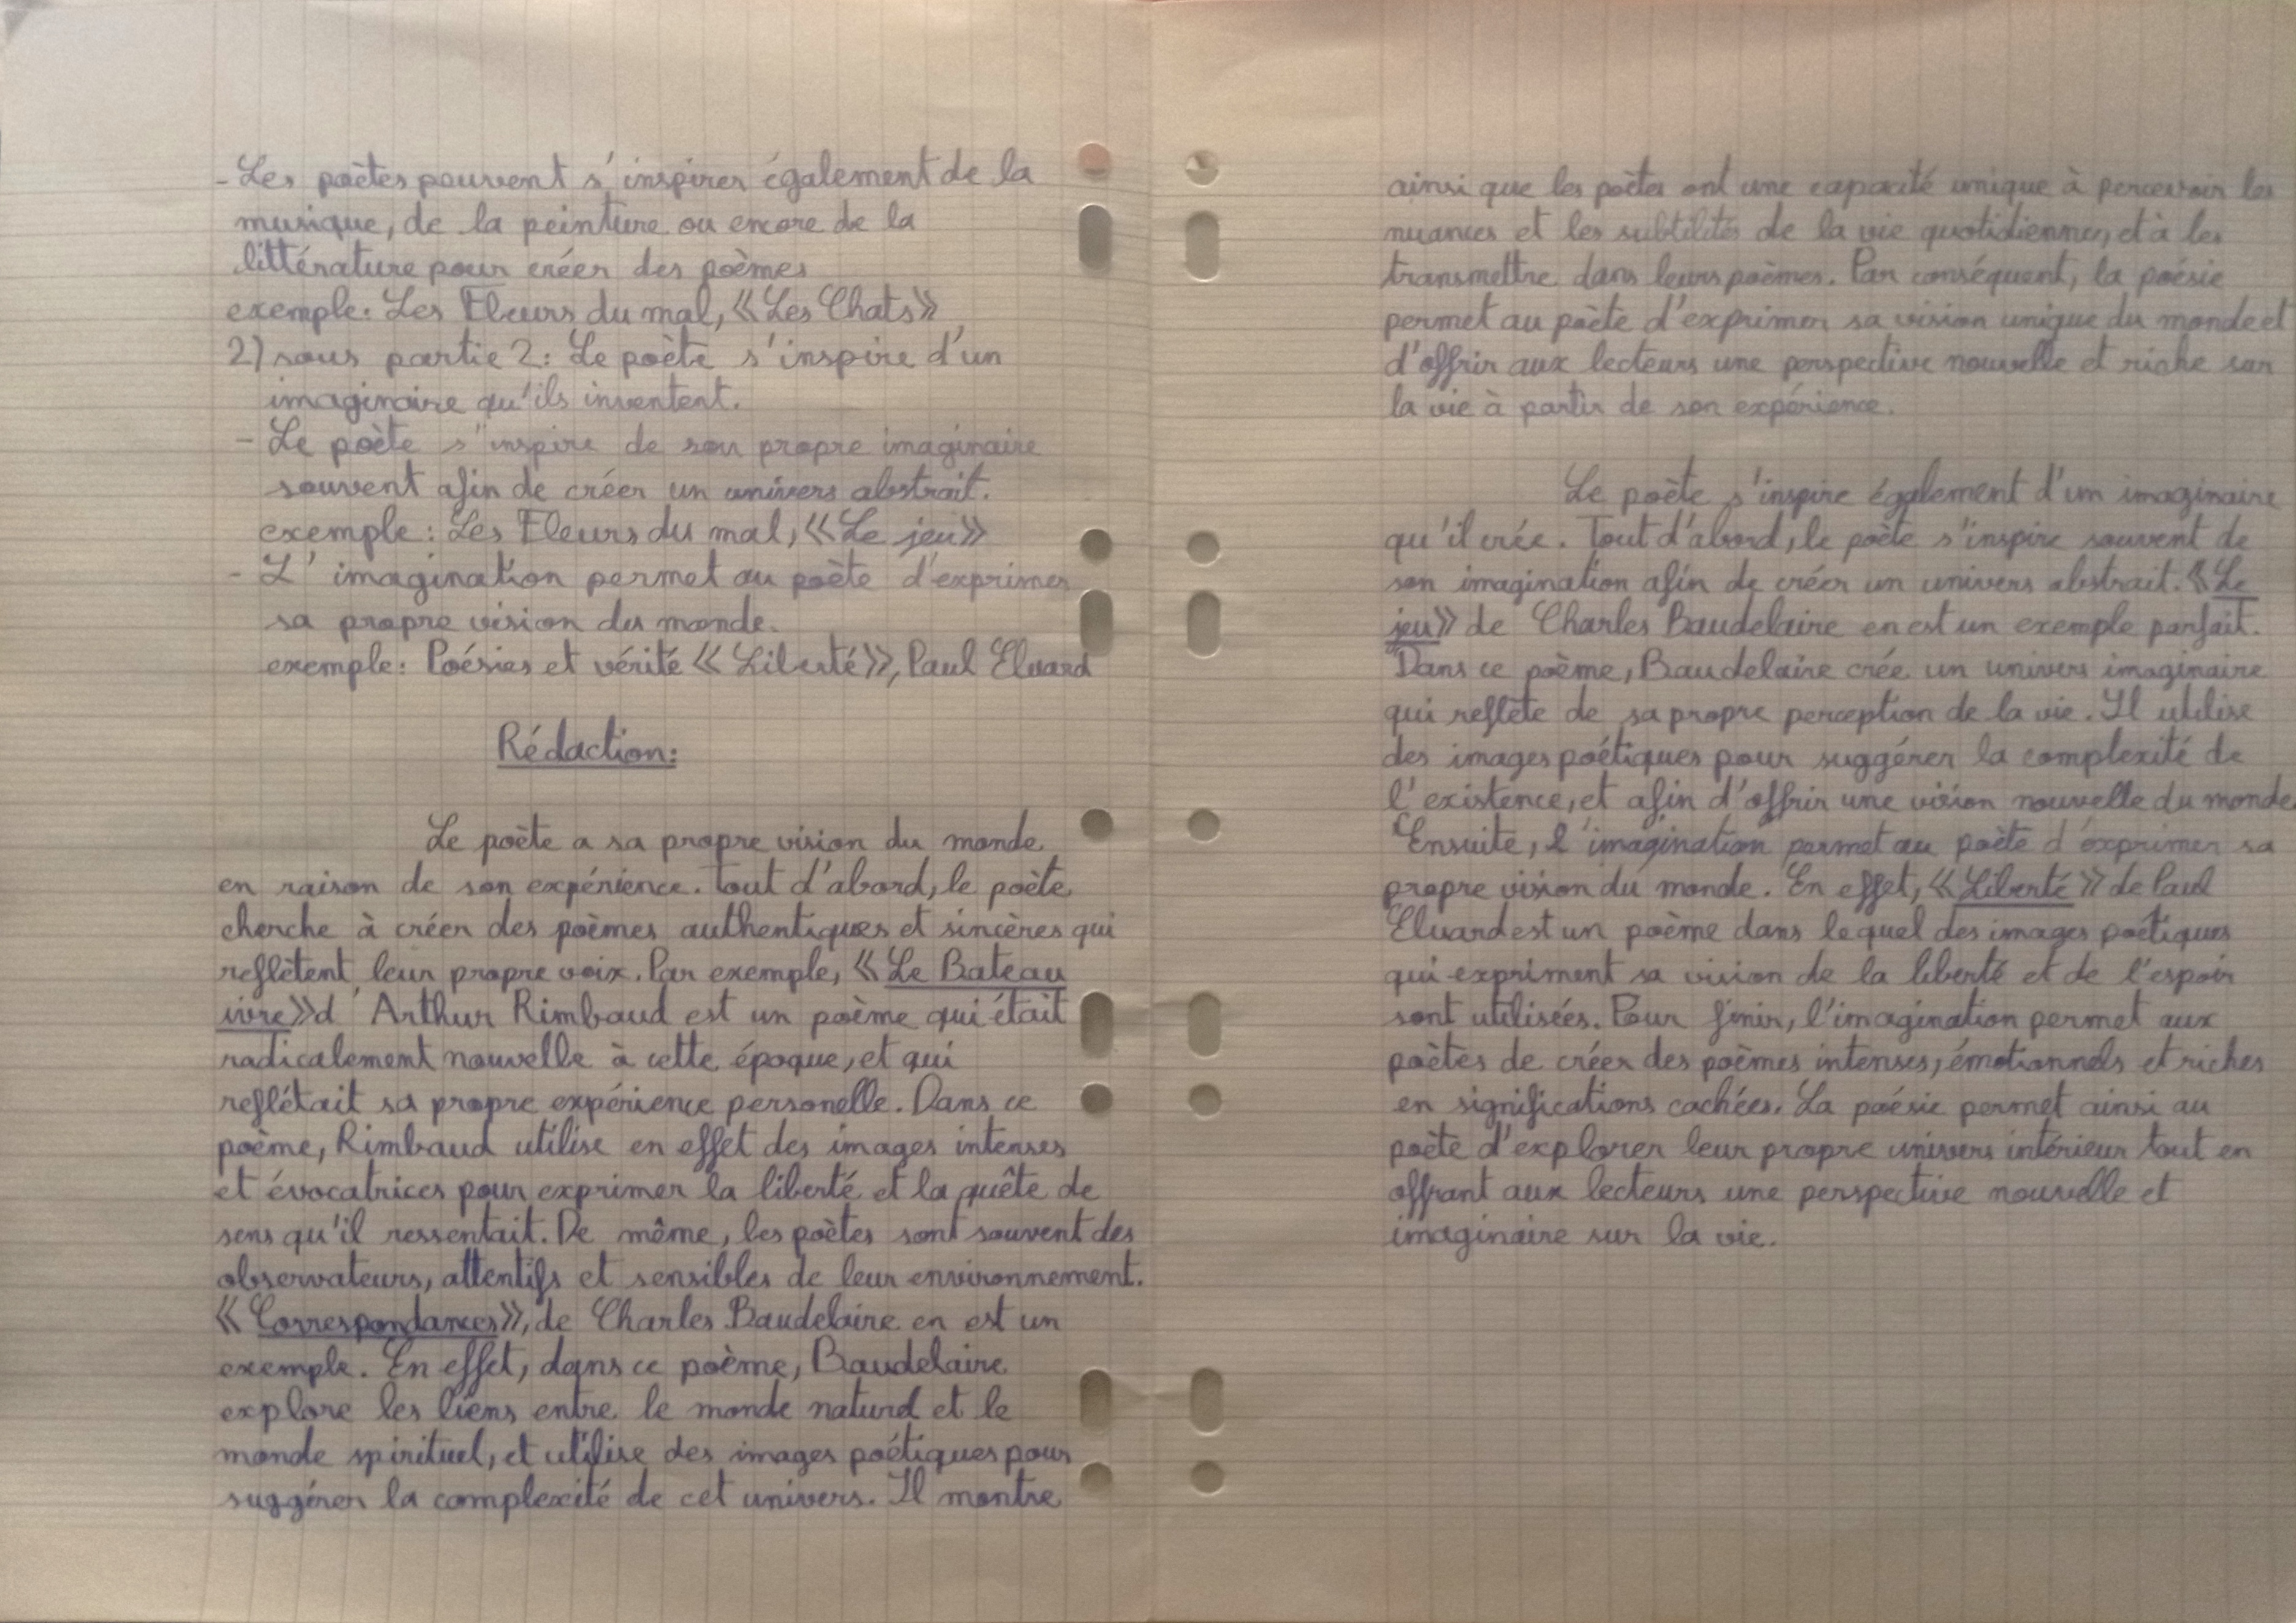 - Les poètes peuvent s'inspirer également de la
musique, de la peinture ou encore de la
littérature pour créer des poèmes
exemple: Les Fleurs du mal, «Les Chats»
2) sous partie 2: Le poète s'inspire d'un
imaginaire qu'ils inventent.
- Le poète s'inspire de son propre imaginaire
souvent afin de créer un univers abstrait.
exemple: Les Fleurs du mal, «Le jeu»
- L'imagination permet au poète d'exprimer
sa propre vision du monde.
exemple: Poésies et vérité «Liberté», Paul Eluard
Rédaction:
Le poète a sa propre vision du monde
en raison de son expérience. Tout d'abord, le poète
cherche à créer des poèmes authentiques et sincères qui
reflètent leur propre voix. Par exemple, «Le Bateau
ivre» d'Arthur Rimbaud est un poème qui était
radicalement nouvelle à cette époque, et qui
reflétait sa propre expérience personelle. Dans ce
poème, Rimbaud utilise en effet des images intenses
et évocatrices pour exprimer la liberté et la quête de
sens qu'il ressentait. De même, les poètes sont souvent des
observateurs, attentifs et sensibles de leur environnement.
«Correspondances», de Charles Baudelaire en est un
exemple. En effet, dans ce poème, Baudelaire
explore les liens entre le monde naturel et le
monde spirituel, et utilise des images poétiques pour
suggérer la complexité de cet univers. Il montre
ainsi que les poètes ont une capacité unique à percevoir les
nuances et les subtilités de la vie quotidiennes, et à les
transmettre dans leurs poèmes. Par conséquent, la poésie
permet au poète d'exprimer sa vision unique du monde et
d'offrir aux lecteurs une perspective nouvelle et riche sur
la vie à partir de son expérience.
Le poète s'inspire également d'un imaginaire
qu'il crée. Tout d'abord, le poète s'inspire souvent de
son imagination afin de créer un univers abstrait. «Le
jeu» de Charles Baudelaire en est un exemple parfait.
Dans ce poème, Baudelaire crée un univers imaginaire
qui reflète de sa propre perception de la vie. Il utilise
des images poétiques pour suggérer la complexité de
l'existence, et afin d'offrir une vision nouvelle du monde
Ensuite, l'imagination permet au poète d'exprimer sa
propre vision du monde. En effet, «Liberté» de Paul
Eluard est un poème dans lequel des images poétiques
qui expriment sa vision de la liberté et de l'espoir
sont utilisées. Pour finir, l'imagination permet aux
poètes de créer des poèmes intenses, émotionnels et riches
en significations cachées. La poésie permet ainsi au
poète d'explorer leur propre univers intérieur tout en
offrant aux lecteurs une perspective nouvelle et
imaginaire sur la vie.